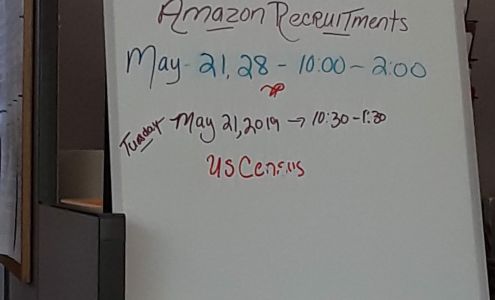 Amazon Recruitments
May - 21, 28 - 10:00 - 2:00
Tuesday May 21, 2019 → 10:30 - 1:30
US Census